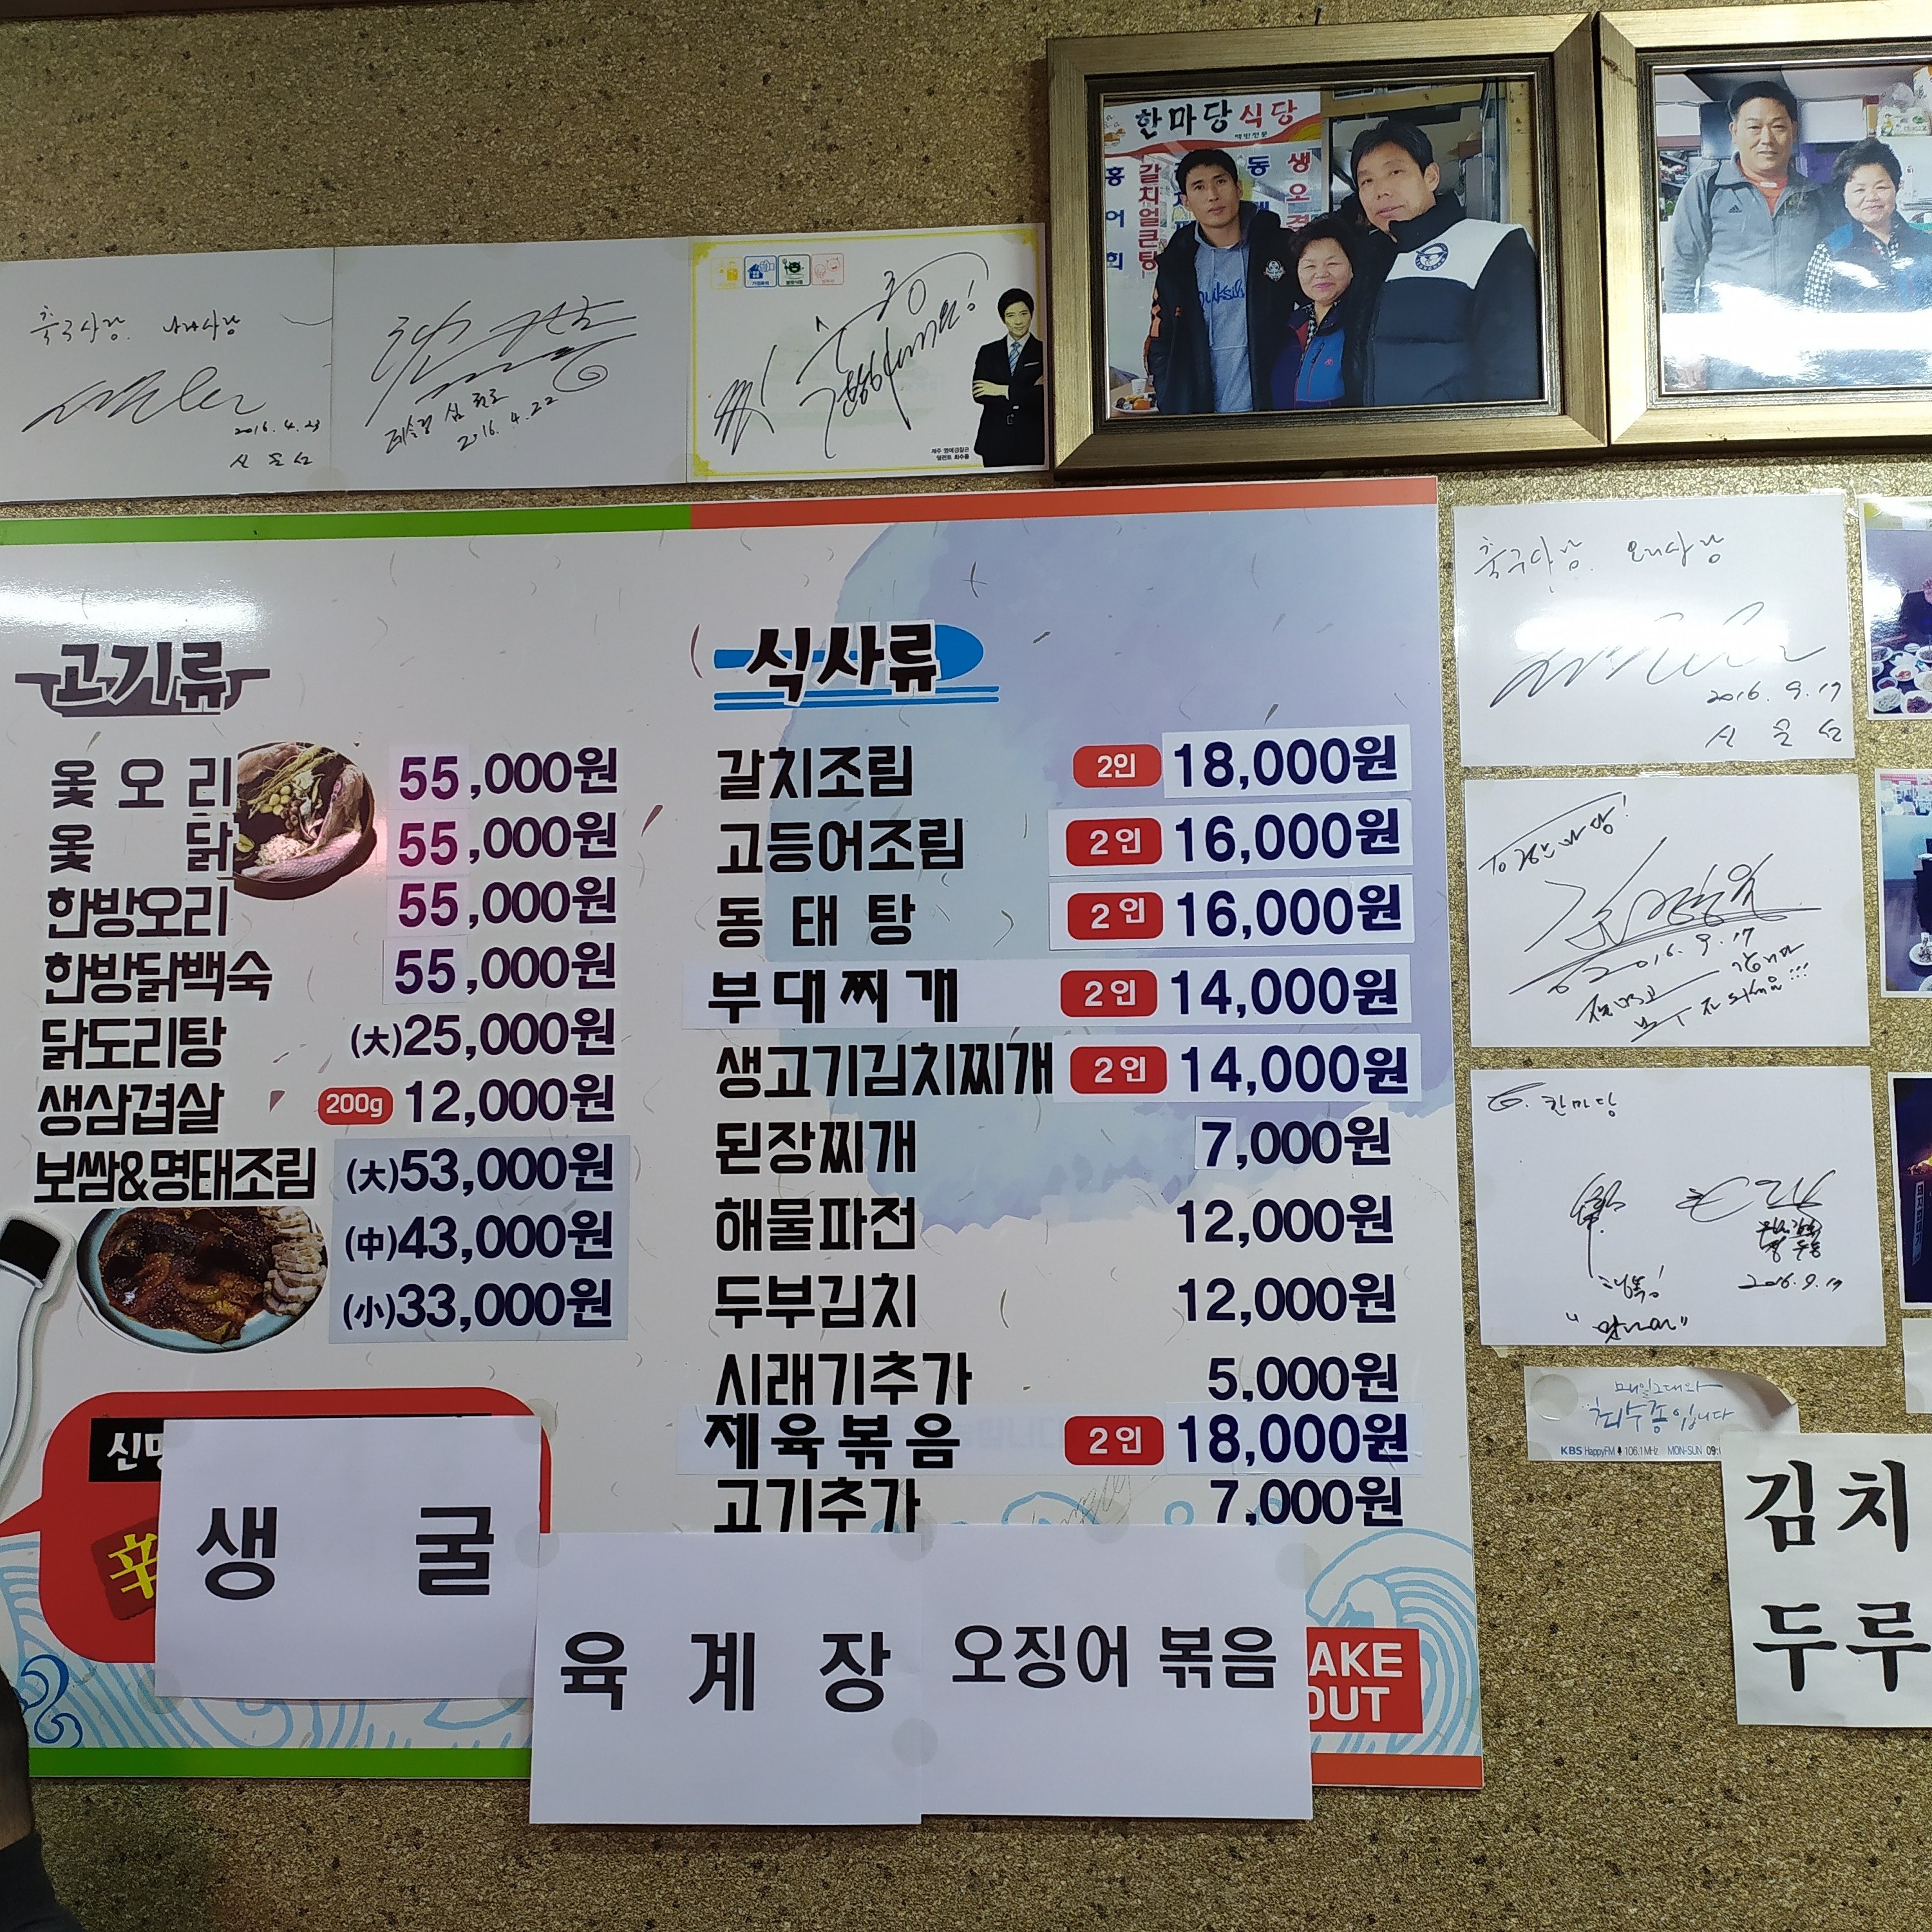 한마당식당
백반전문
홍어회
갈치얼큰탕
동
생오
축구사랑.
2016. 4. 23
신문선
심판
2016. 4. 22
최수종
축구사랑. 오리사랑
2016. 9. 17
신문선
2016. 9. 17
To. 한마당
2016. 9. 17
매일그대와
최수종입니다
KBS HappyFM 106.1MHz MON-SUN 09:
고기류
옻오리 55,000원
옻닭 55,000원
한방오리 55,000원
한방닭백숙 55,000원
닭도리탕 (大)25,000원
생삼겹살 200g 12,000원
보쌈&명태조림 (大)53,000원
(中)43,000원
(小)33,000원
식사류
갈치조림 2인 18,000원
고등어조림 2인 16,000원
동태탕 2인 16,000원
부대찌개 2인 14,000원
생고기김치찌개 2인 14,000원
된장찌개 7,000원
해물파전 12,000원
두부김치 12,000원
시래기추가 5,000원
제육볶음 2인 18,000원
고기추가 7,000원
辛
생 굴
육 계 장
오징어 볶음
AKE
OUT
김치
두루